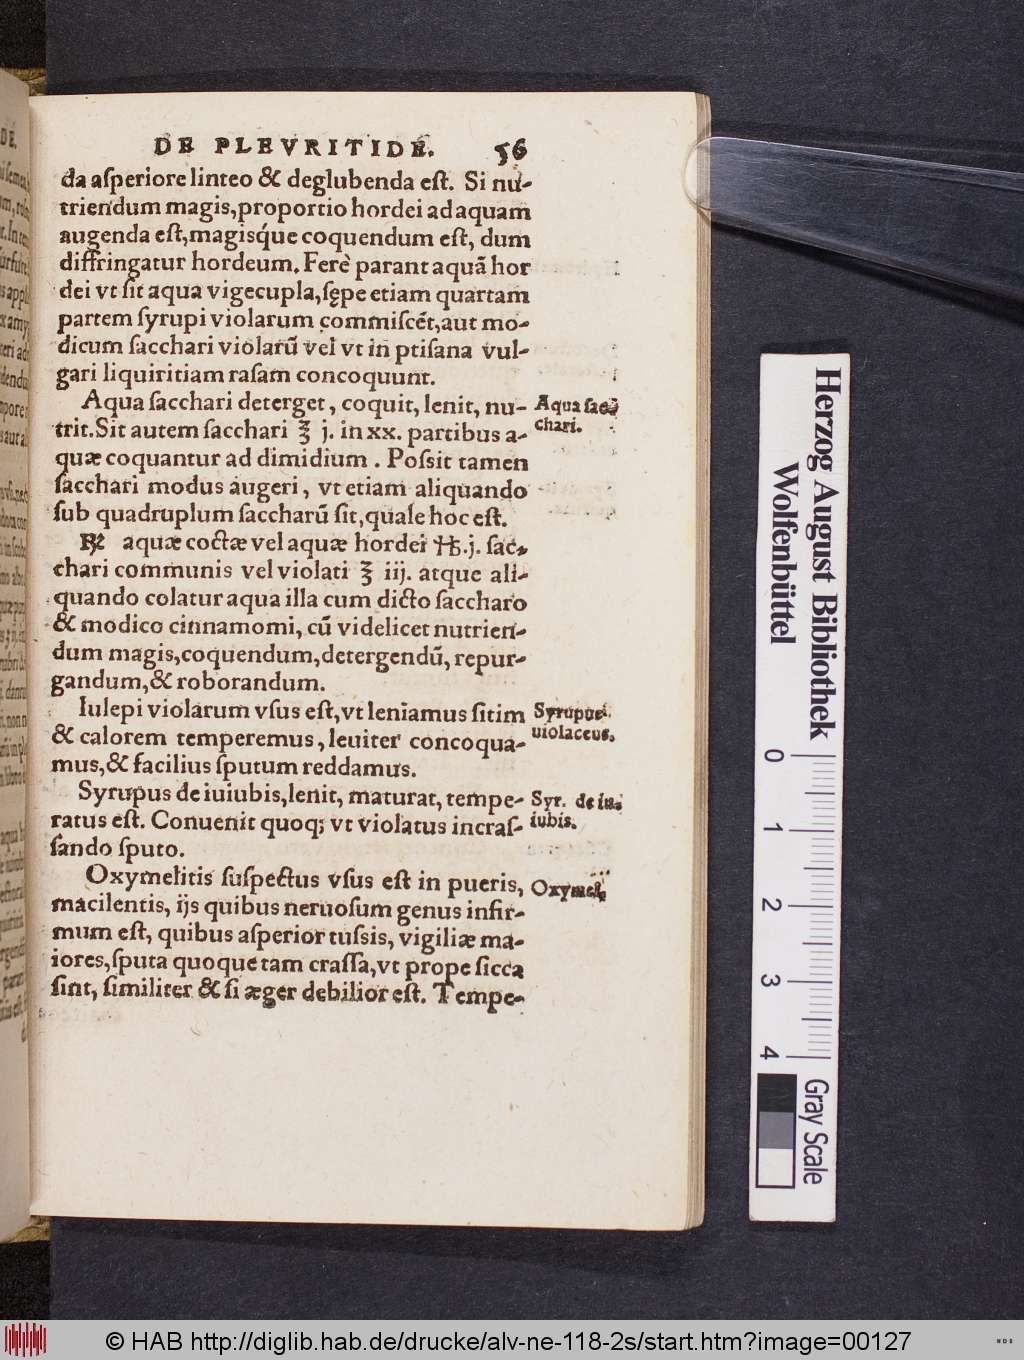 DE PLEVRITIDE. 56
da aſperiore linteo & deglubenda eſt. Si nu-
triendum magis, proportio hordei ad aquam
augenda eſt, magisq́ue coquendum eſt, dum
diffringatur hordeum. Ferè parant aquã hor
dei vt ſit aqua vigecupla, ſępe etiam quartam
partem ſyrupi violarum commiſcẽt, aut mo-
dicum ſacchari violarũ vel vt in ptiſana vul-
gari liquiritiam raſam concoquunt.
Aqua ſacchari deterget, coquit, lenit, nu-
Aqua sac-
trit. Sit autem ſacchari ℥ j. in xx. partibus a-
chari.
quæ coquantur ad dimidium. Poſsit tamen
ſacchari modus augeri, vt etiam aliquando
ſub quadruplum ſaccharũ ſit, quale hoc eſt.
℞ aquæ coctæ vel aquæ hordei ℔. j. ſac-
chari communis vel violati ℥ iij. atque ali-
quando colatur aqua illa cum dicto ſaccharo
& modico cinnamomi, cũ videlicet nutrien-
dum magis, coquendum, detergendũ, repur-
gandum, & roborandum.
Iulepi violarum vſus eſt, vt leniamus ſitim
Syrupus
& calorem temperemus, leuiter concoqua-
uiolaceus.
mus, & facilius ſputum reddamus.
Syrupus de iuiubis, lenit, maturat, tempe-
Syr. de iu-
ratus eſt. Conuenit quoq; vt violatus incraſ-
iubis.
ſando ſputo.
Oxymelitis ſuſpectus vſus eſt in pueris,
Oxymel.
macilentis, ijs quibus neruoſum genus infir-
mum eſt, quibus aſperior tuſsis, vigiliæ ma-
iores, ſputa quoque tam craſſa, vt prope ſicca
ſint, ſimiliter & ſi æger debilior eſt. Tempe-
Herzog August Bibliothek
Wolfenbüttel
0 1 2 3 4
Gray Scale
© HAB http://diglib.hab.de/drucke/alv-ne-118-2s/start.htm?image=00127